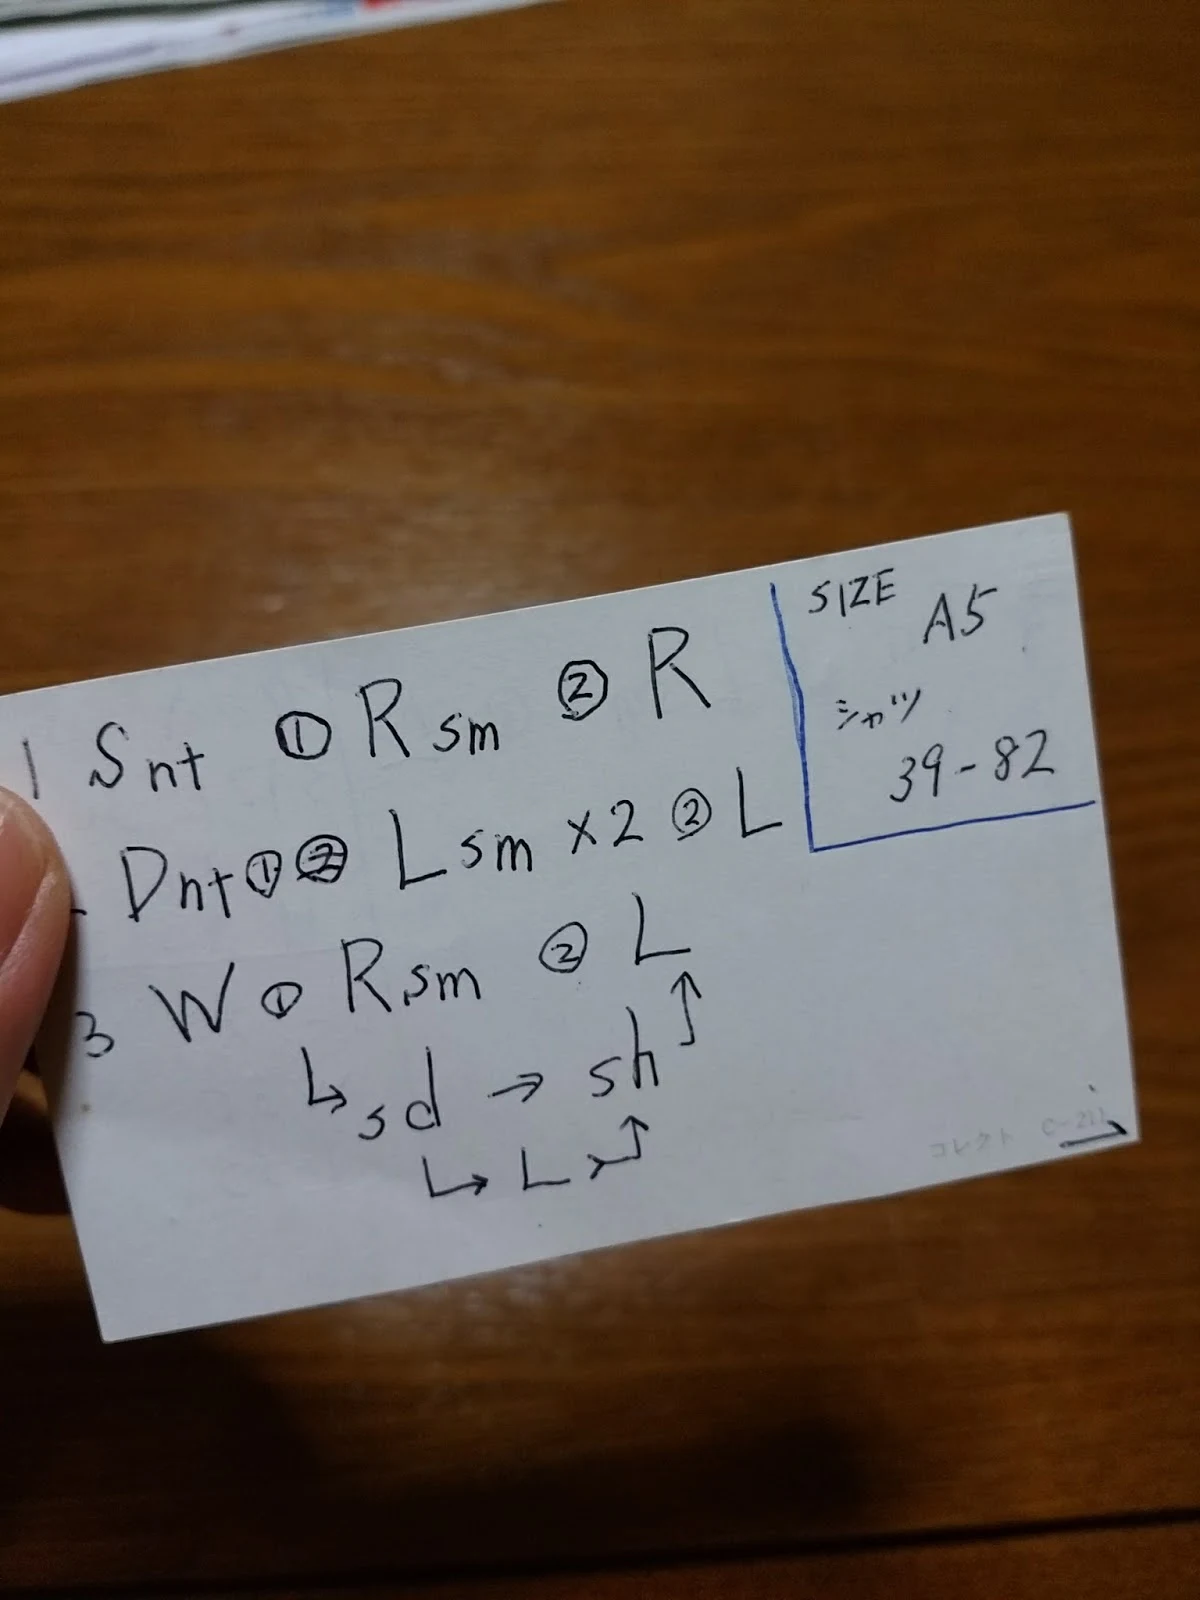 1 Snt ① Rsm ② R
Dnt ① Lsm ×2 ② L
3 W ① Rsm ② L
↳ sd → sh ↑
↳ L ↑
SIZE
A5
シャツ
39-82
コレクト